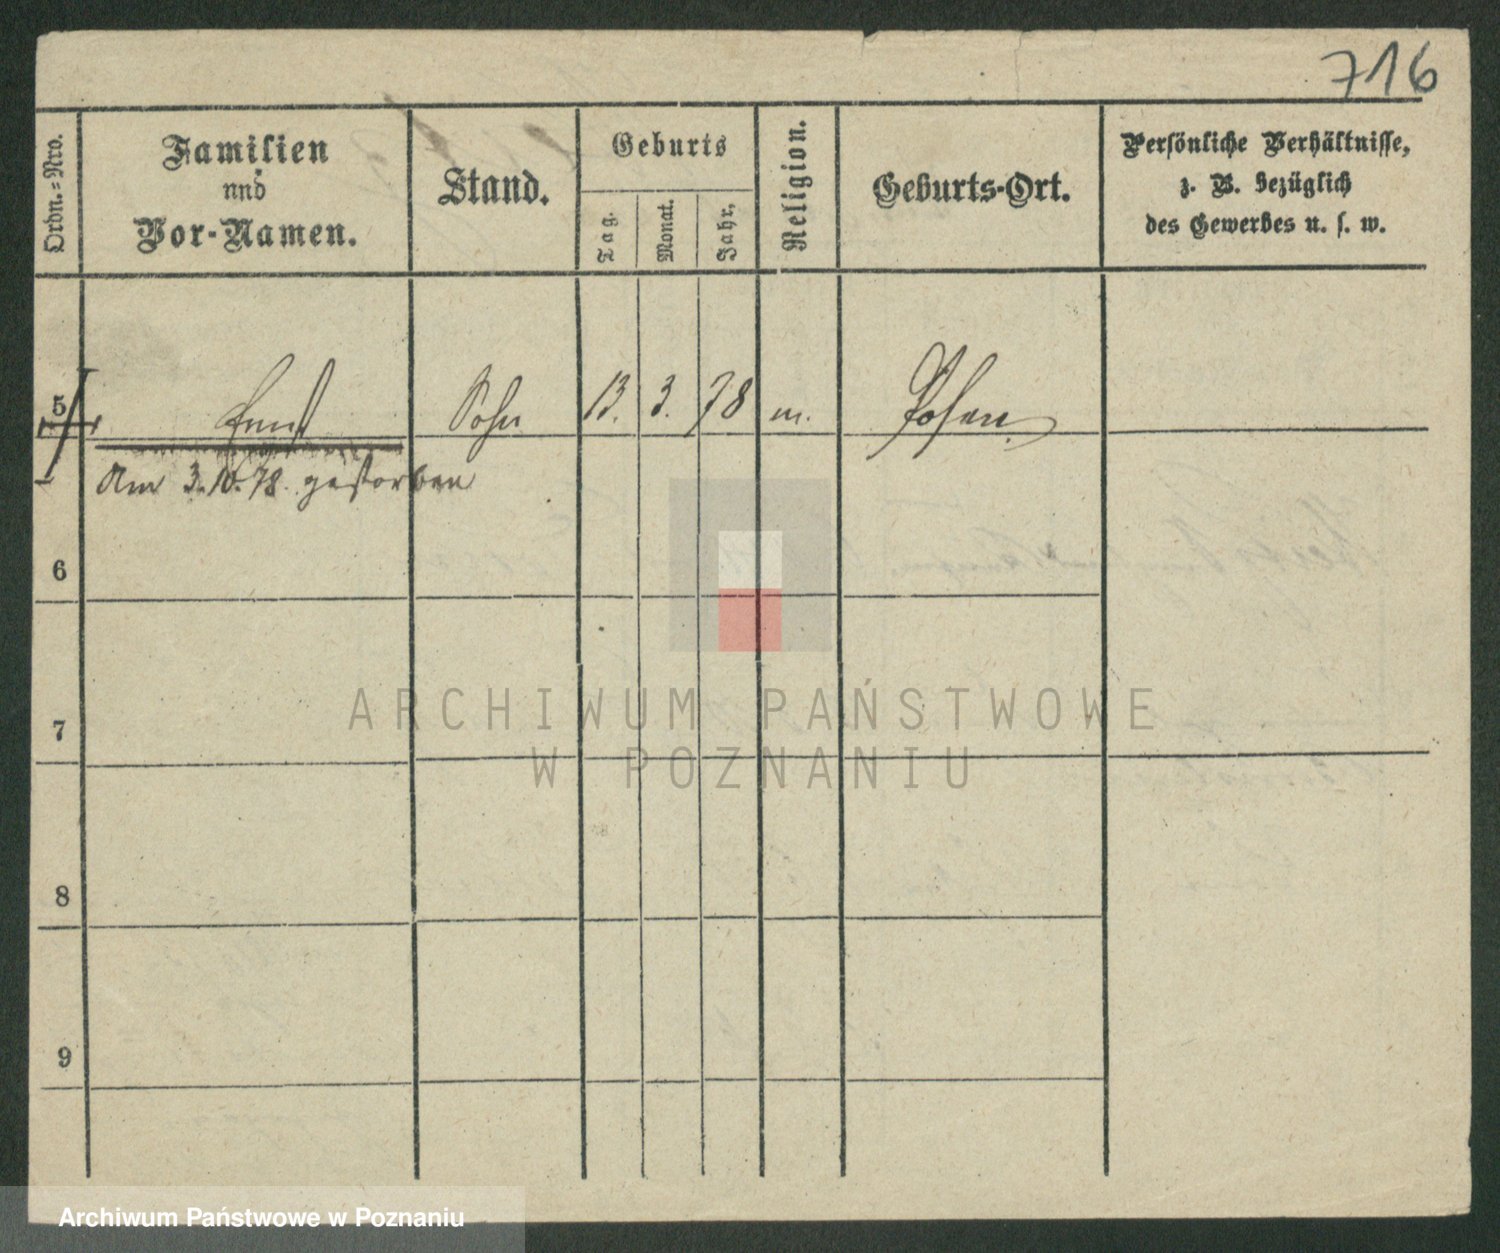 716
Ordn.=Nro.
Familien
und
Vor-Namen.
Stand.
Geburts
Tag.
Monat.
Jahr.
Religion.
Geburts-Ort.
Persönliche Verhältnisse,
z. B. bezüglich
des Gewerbes u. s. w.
5 Ernst Sohn 13. 3. 78 m. Posen
Am 3.10.78. gestorben
6
7
8
9
ARCHIWUM PAŃSTWOWE
W POZNANIU
Archiwum Państwowe w Poznaniu